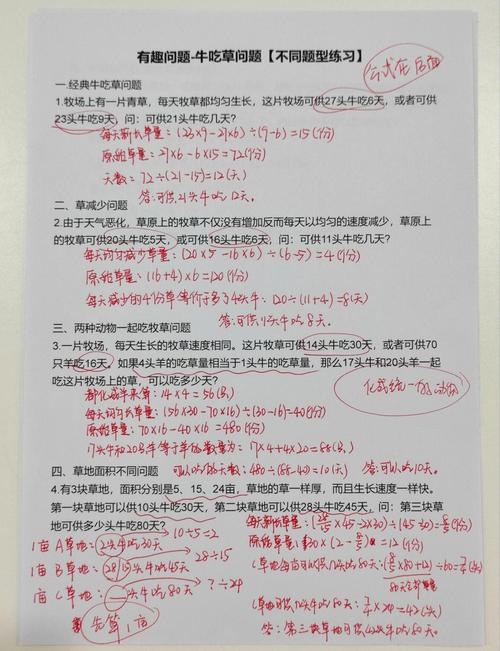 有趣问题-牛吃草问题【不同题型练习】
公式在后面
一.经典牛吃草问题
1.牧场上有一片青草，每天牧草都均匀生长，这片牧场可供27头牛吃6天，或者可供
23头牛吃9天，问：可供21头牛吃几天？
每天新长草量：(23×9-27×6)÷(9-6)=15(份)
原始草量：27×6-6×15=72(份)
天数：72÷(21-15)=12(天)
答:可供21头牛吃12天。
二、草减少问题
2.由于天气恶化，草原上的牧草不仅没有增加反而每天以均匀的速度减少，草原上
的牧草可供20头牛吃5天，或可供16头牛吃6天，问：可供11头牛吃几天？
每天均匀减少草量：(20×5-16×6)÷(6-5)=4(份)
原始草量：(16+4)×6=120(份)
每天减少的4份草等价于多了4头牛：120÷(11+4)=8(天)
答:可供11头牛吃8天。
三、两种动物一起吃牧草问题
3.一片牧场，每天生长的牧草速度相同。这片牧草可供14头牛吃30天，或者可供70
只羊吃16天。如果4头羊的吃草量相当于1头牛的吃草量，那么17头牛和20头羊一起
吃这片牧场上的草，可以吃多少天？
化成统一的动物
都化成羊来算：14×4=56(只)
每天均匀长草量：(56×30-70×16)÷(30-16)=40(份)
原始草量：70×16-40×16=480(份)
17头牛和20只羊等于羊的数量为：17×4+20=88(只)
可以吃的天数：480÷(88-40)=10(天) 答：可以吃10天。
四、草地面积不同问题
4.有3块草地，面积分别是5、15、24亩，草地的草一样厚，而且生长速度一样快。
第一块草地可以供10头牛吃30天，第二块草地可以供28头牛吃45天，问：第三块草
地可供多少头牛吃80天？
10÷5=2
1亩A草地：2头牛吃30天
28÷15
1亩B草地：28/15头牛吃45天
?÷24
亩C草地：头牛吃80天
先算1亩
每天新长草量：(28/15×45-2×30)÷(45-30)=8/5(份)
原始草量：30×(2-8/5)=12(份)
答：第三块草地可供42头牛吃80天